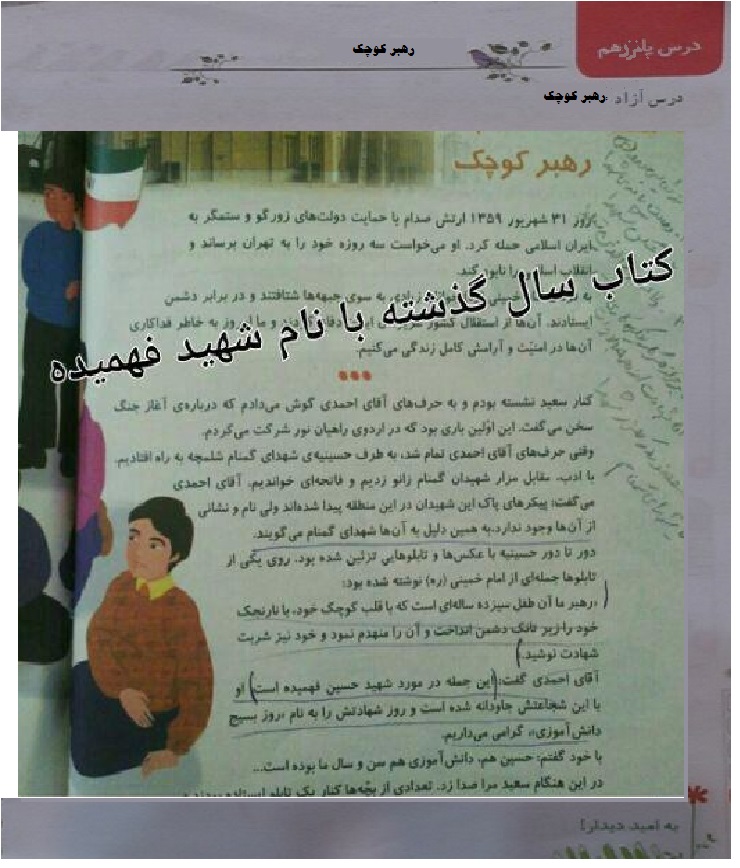 رهبر کوچک
درس پانزدهم
درس آزاد :رهبر کوچک
رهبر کوچک
روز ۳۱ شهریور ۱۳۵۹ ارتش صدام با حمایت دولت‌های زورگو و ستمگر به
ایران اسلامی حمله کرد. او می‌خواست سه روزه خود را به تهران برساند و
انقلاب اسلامی را نابود کند.
به زیادی به سوی جبهه‌ها شتافتند و در برابر دشمن
ایستادند. آن‌ها از استقلال کشور روز به خاطر فداکاری
آن‌ها در امنیّت و آرامش کامل زندگی می‌کنیم.
کتاب سال گذشته با نام شهید فهمیده
کنار سعید نشسته بودم و به حرف‌های آقای احمدی گوش می‌دادم که درباره‌ی آغاز جنگ
سخن می‌گفت. این اوّلین باری بود که در اردوی راهیان نور شرکت می‌کردم.
وقتی حرف‌های آقای احمدی تمام شد، به طرف حسینیه‌ی شهدای گمنام شلمچه به راه افتادیم.
با ادب، مقابل مزار شهیدان گمنام زانو زدیم و فاتحه‌ای خواندیم. آقای احمدی
می‌گفت: پیکرهای پاک این شهیدان در این منطقه پیدا شده‌اند ولی نام و نشانی
از آن‌ها وجود ندارد.به همین دلیل به آن‌ها شهدای گمنام می‌گویند.
دور تا دور حسینیه با عکس‌ها و تابلوهایی تزئین شده بود. روی یکی از
تابلوها جمله‌ای از امام خمینی (ره) نوشته شده بود:
«رهبر ما آن طفل سیزده ساله‌ای است که با قلب کوچک خود، با نارنجک
خود را زیر تانک دشمن انداخت و آن را منهدم نمود و خود نیز شربت
شهادت نوشید.»
آقای احمدی گفت: این جمله در مورد شهید حسین فهمیده است. او
با این شجاعتش جاودانه شده است و روز شهادتش را به نام «روز بسیج
دانش‌آموزی» گرامی می‌داریم.
با خود گفتم: حسین هم، دانش‌آموزی هم سن و سال ما بوده است...
در این هنگام سعید مرا صدا زد. تعدادی از بچّه‌ها کنار یک تابلو ایستاده بودند و
به امید دیدار!